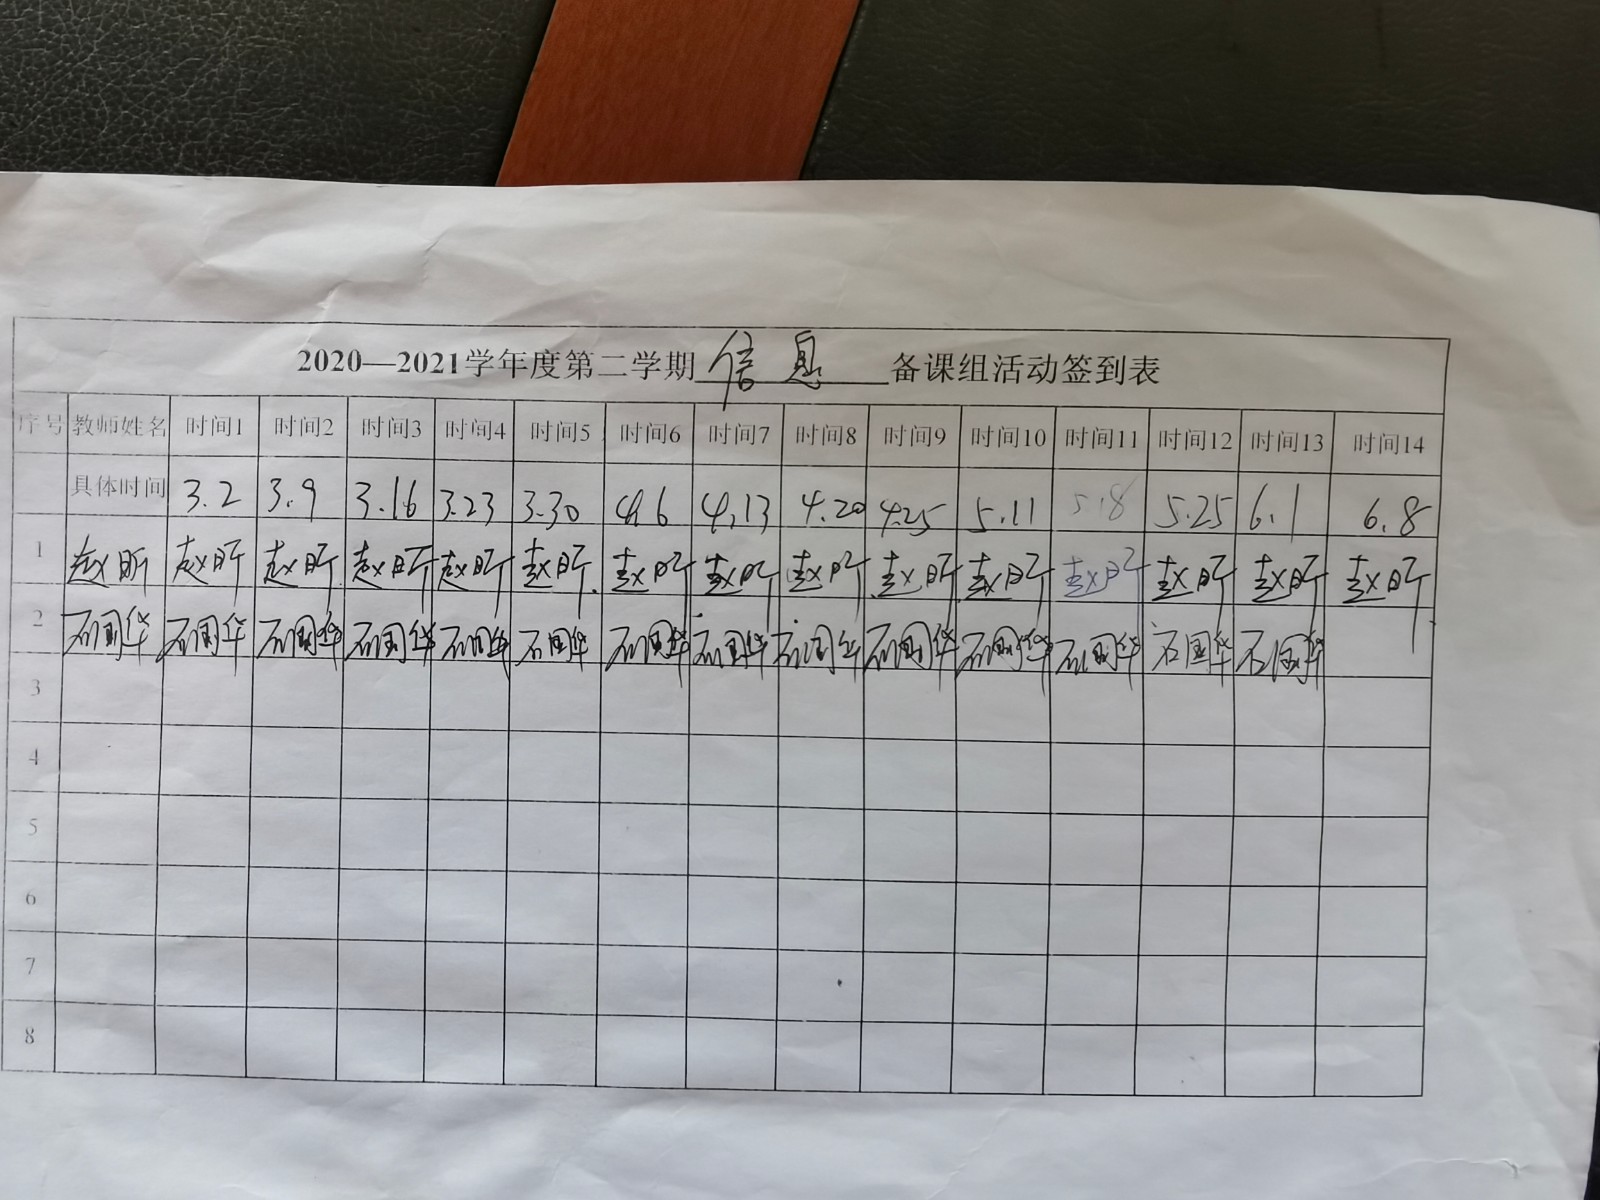 2020—2021学年度第二学期 信息 备课组活动签到表
序号 教师姓名 时间1 时间2 时间3 时间4 时间5 时间6 时间7 时间8 时间9 时间10 时间11 时间12 时间13 时间14
具体时间 3.2 3.9 3.16 3.23 3.30 4.6 4.13 4.20 4.25 5.11 5.18 5.25 6.1 6.8
1 赵昕 赵昕 赵昕 赵昕 赵昕 赵昕 赵昕 赵昕 赵昕 赵昕 赵昕 赵昕 赵昕 赵昕 赵昕
2 石国华 石国华 石国华 石国华 石国华 石国华 石国华 石国华 石国华 石国华 石国华 石国华 石国华 石国华
3
4
5
6
7
8